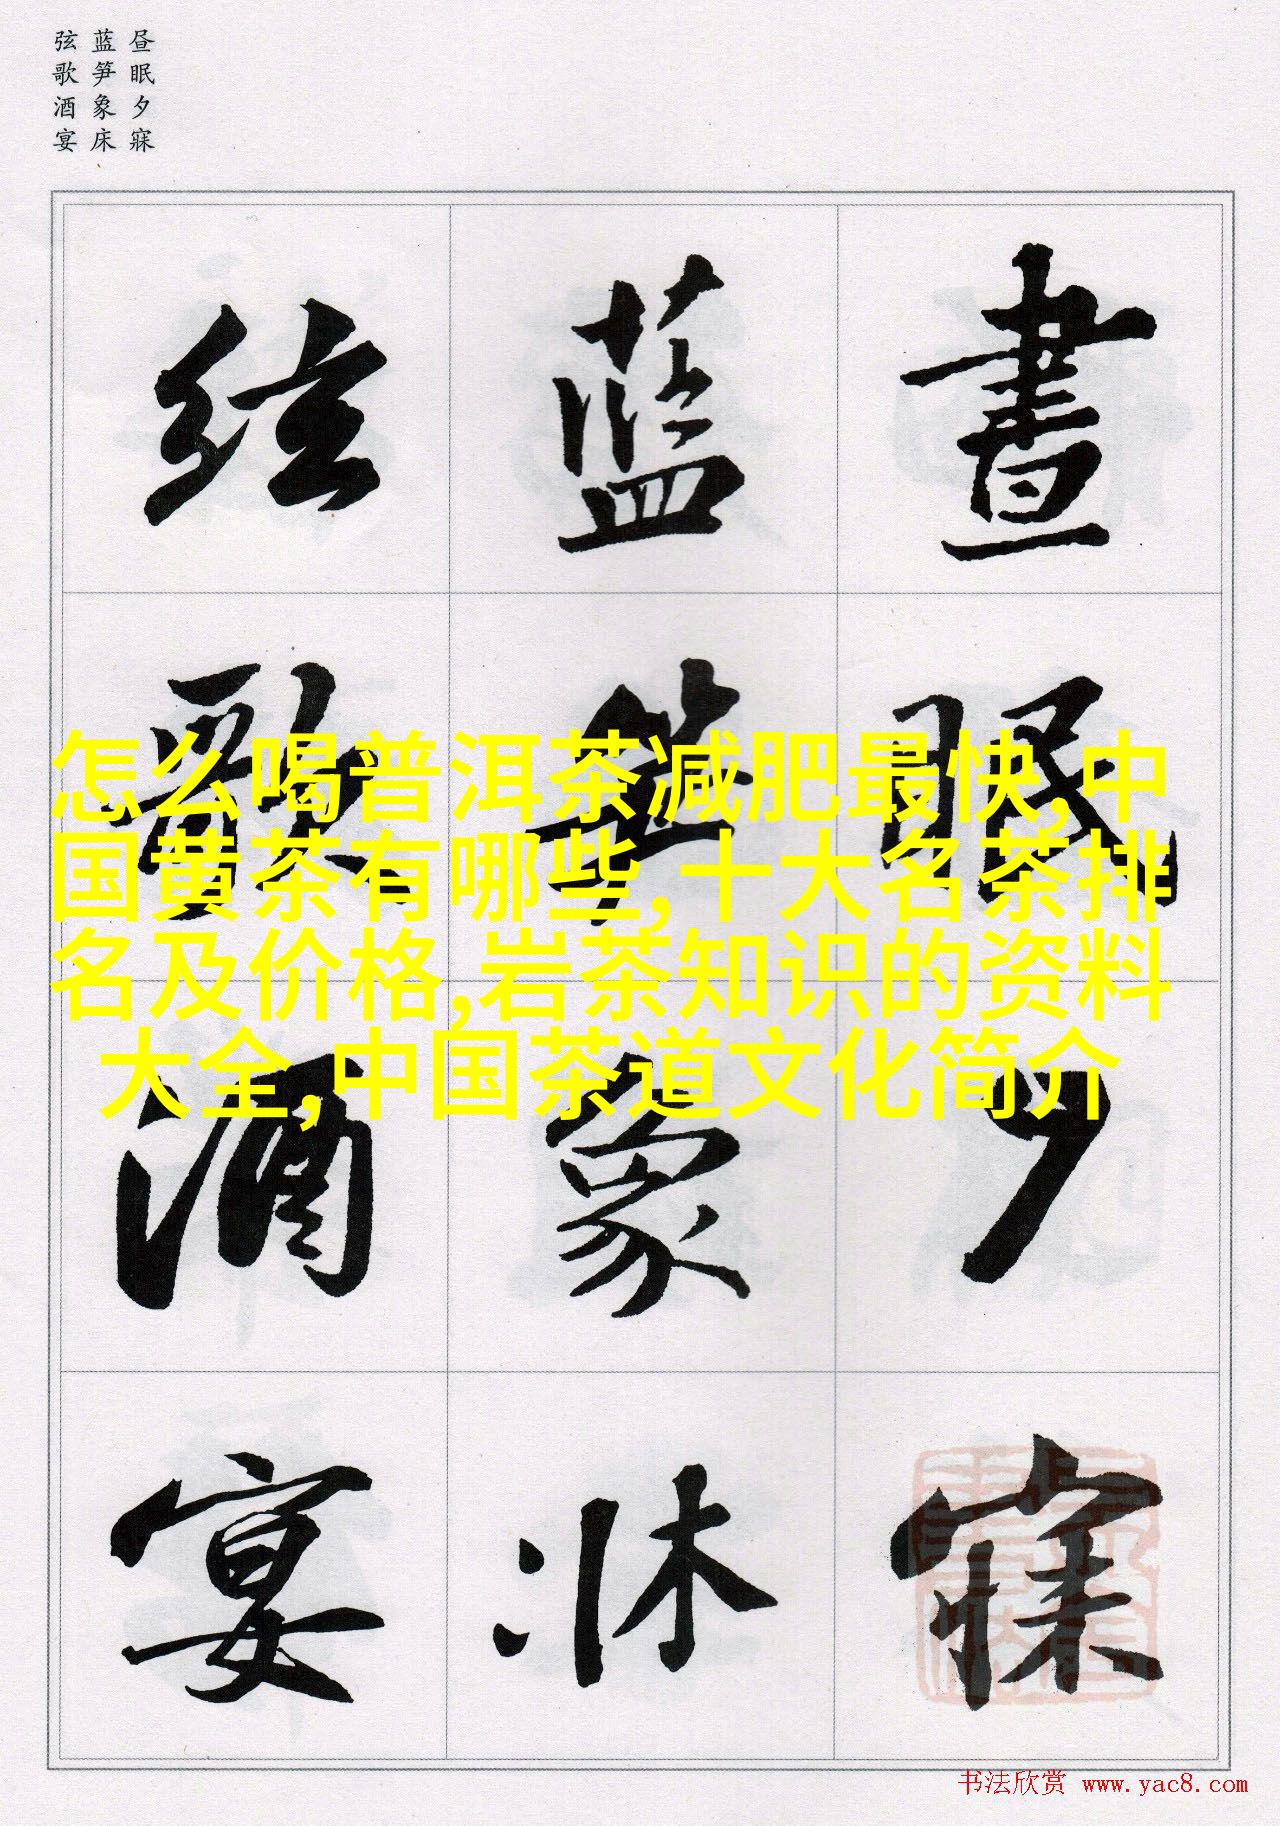 昼眠夕寐
蓝笋象床
弦歌酒宴
晝眠夕寐
藍笋象床
弦歌酒宴
怎么喝普洱茶减肥最快,中
国黄茶有哪些,十大名茶排
名及价格,岩茶知识的资料
大全,中国茶道文化简介
书法欣赏 www.yac8.com